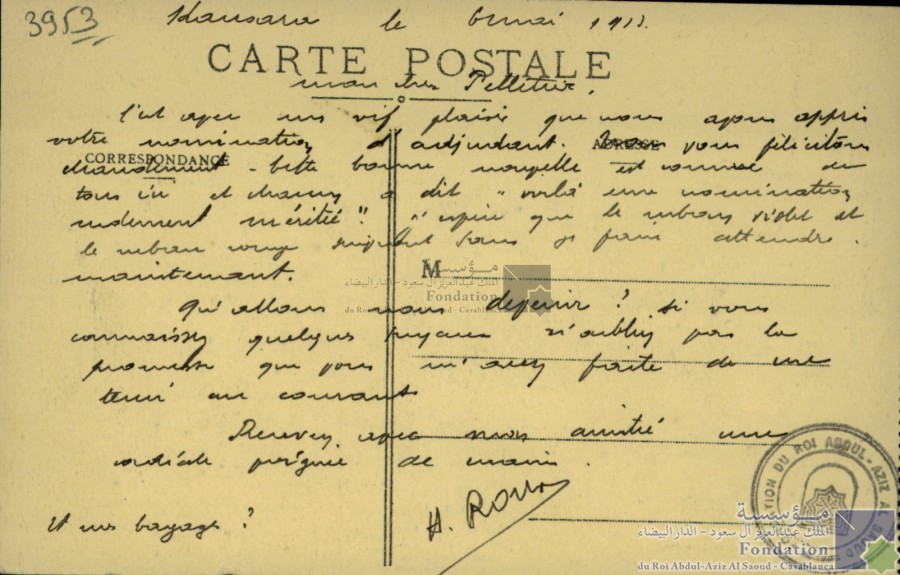 3953
le 6 mai 1913.
CARTE POSTALE
mon cher Pelletier,
C'est avec un vif plaisir que nous avons appris
votre nomination d'adjudant. nous vous félicitons
CORRESPONDANCE
ADRESSE
chaudement. Cette bonne nouvelle est connue de
tous ici et chacun a dit "voilà une nomination
rudement méritée". J'espère que le ruban violet et
le ruban rouge suivront sans se faire attendre.
maintenant.
M
مؤسسة
الملك عبد العزيز آل سعود - الدار البيضاء
Fondation
du Roi Abdul-Aziz Al Saoud - Casablanca
Qu'allons nous devenir? si vous
connaissez quelques tuyaux n'oubliez pas la
promesse que vous m'avez faite de me
tenir au courant
Recevez avec mon amitié une
cordiale poignée de main.
H.
Et nos bagages?
FONDATION DU ROI ABDUL-AZIZ AL SAOUD
مؤسسة
الملك عبد العزيز آل سعود - الدار البيضاء
Fondation
du Roi Abdul-Aziz Al Saoud - Casablanca